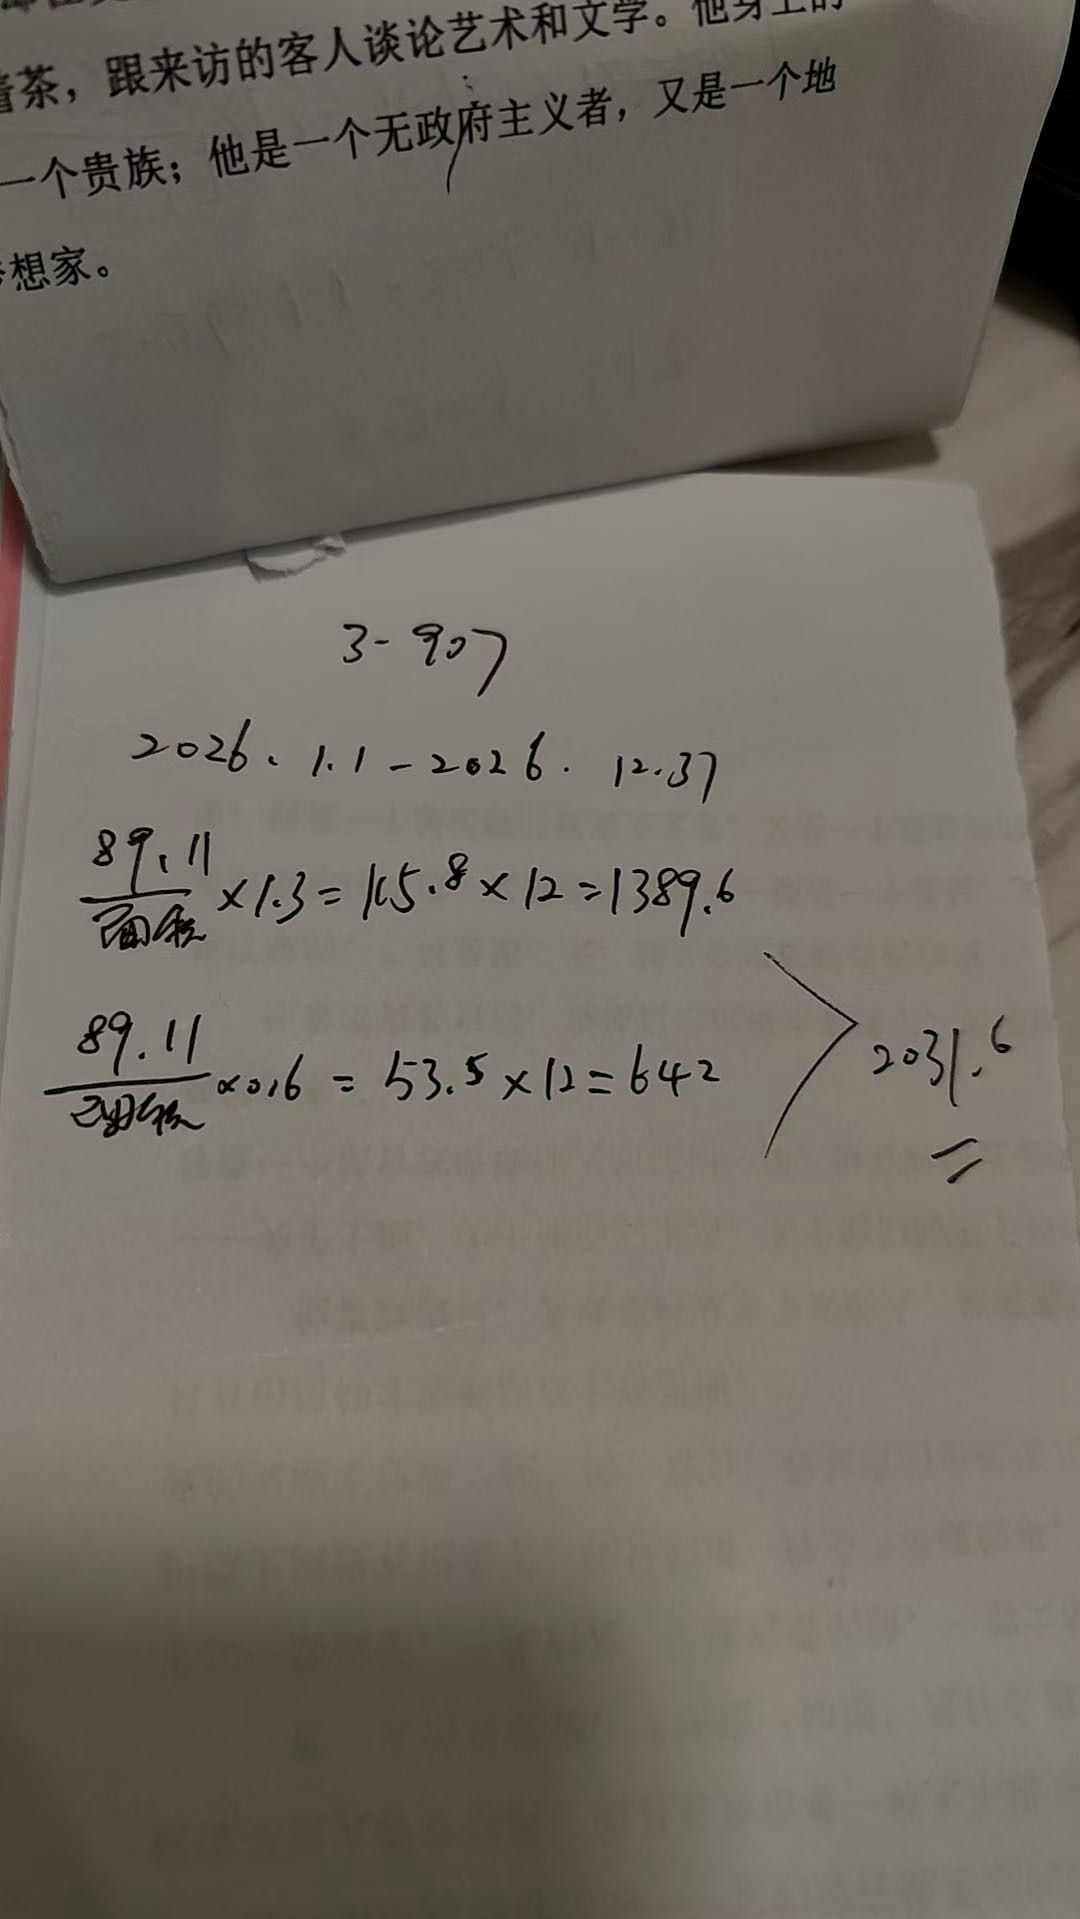 着茶，跟来访的客人谈论艺术和文学。他身上的
一个贵族；他是一个无政府主义者，又是一个地
想家。
3-907
2026.1.1-2026.12.31
89.11
面积
×1.3=115.8×12=1389.6
89.11
面积
×0.6=53.5×12=642
2031.6